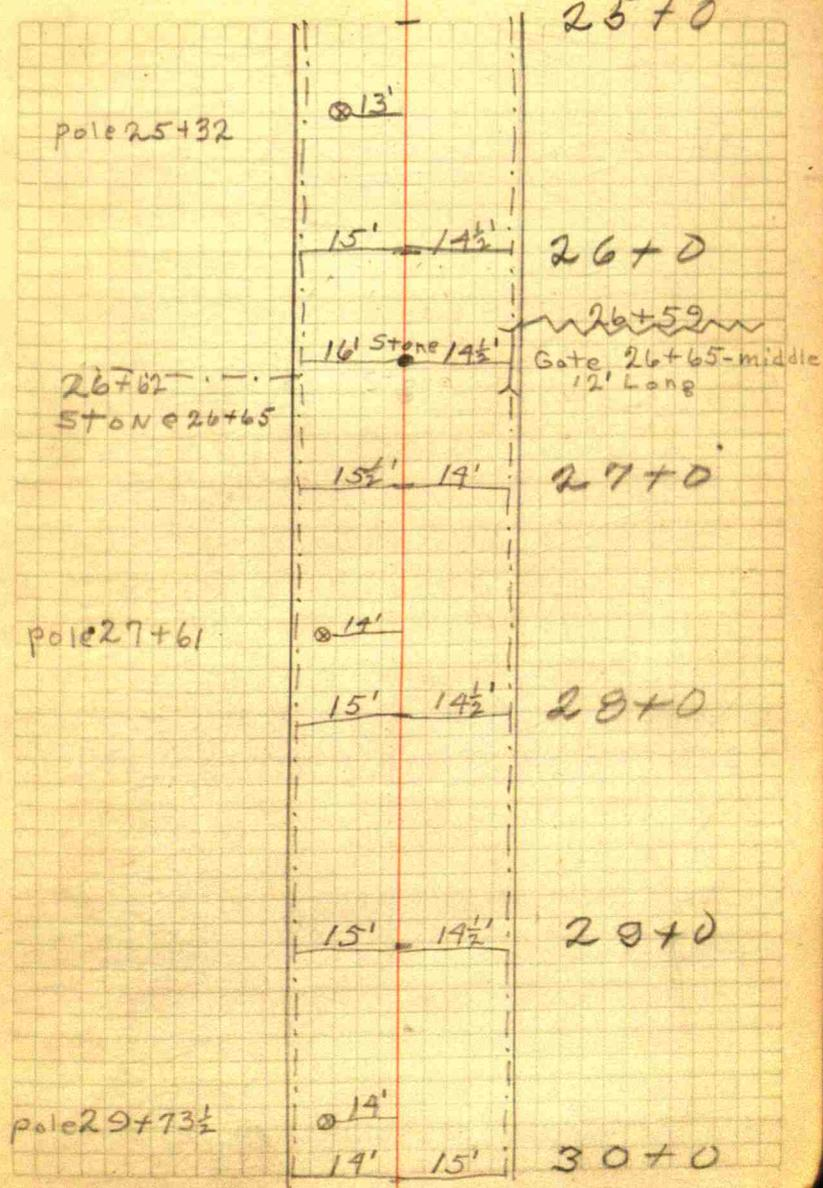 25+0
13'
pole 25+32
15' 14½' 26+0
26+59
16' Stone 14½' Gate 26+65-middle
26+62 12' Long
STONe 26+65
15½' 14' 27+0
14'
pole 27+61
15' 14½' 28+0
15' 14½' 29+0
14'
pole 29+73½
14' 15' 30+0